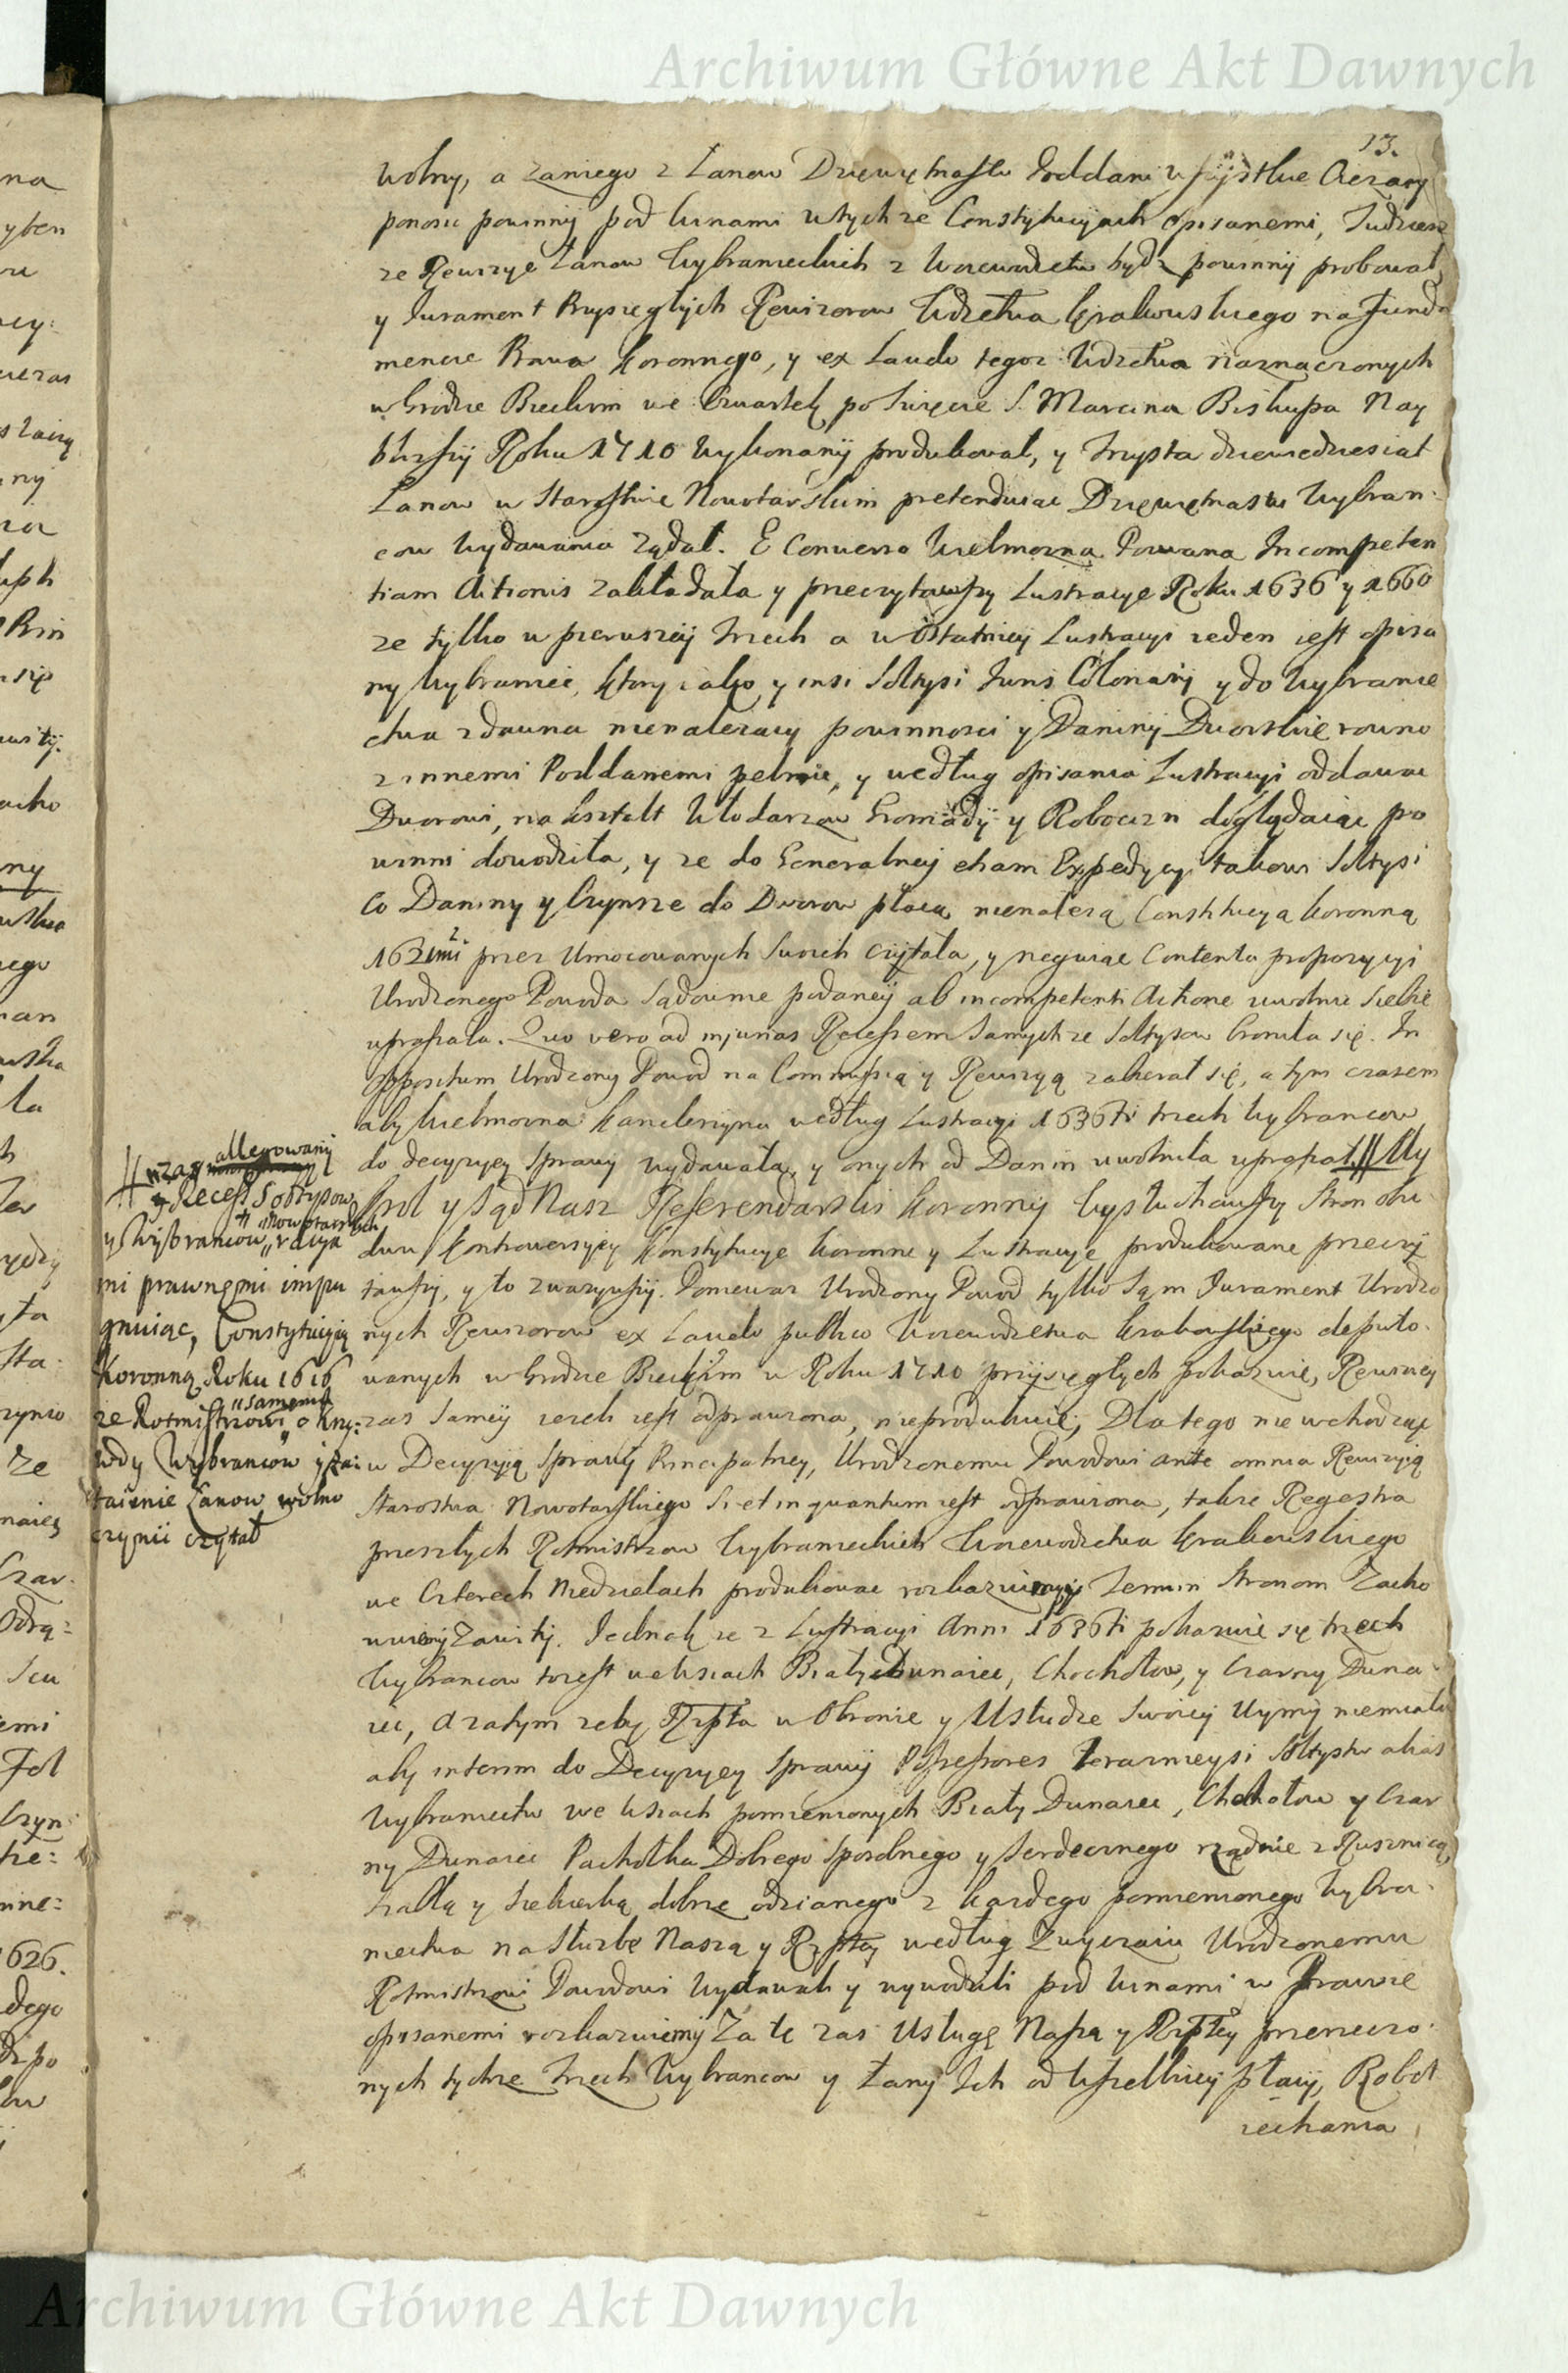 Archiwum Główne Akt Dawnych
13.
wolny, a zaniego z Łanow Dziewiętnastu Poddani wszystkie Ciezary
ponosic powinnÿ pod winami wtych ze Constÿtucÿach opisanemi, Tudziesz
ze Rewizye Łanow Wybranieckich z Woiewodztw bydz powinnÿ probował,
y Jurament Przysięgłÿch Rewizorow Wdztwa Krakowskiego na Funda
mencie Prawa Koronnego, y ex Laudo tegoz Wdztwa naznaczonych
w Grodzie Bieckim we Czwartek po Swięcie S. Marcina Biskupa Nay
blizszÿ Roku 1710 wykonanÿ produkował, y Trzysta dziewiedziesiat
Łanow w Starostwie Nowotarskim pretenduiac Dziewiętnastu Wybran:
cow wydawania ządał. E Converso Wielmozna Pozwana Incompeten
tiam Actionis zakładała y przeczytawszy Lustracye Roku 1636 y 1660
ze tylko w pierwszeÿ trzech a w ostatnieÿ Lustracyi ieden iest opisa
ny Wybraniec, ktory iako y insi Soltysi Juris Colonarÿ y do Wybranie
ctwa zdawna nienalezacy powinnosci y Daninÿ Dworskie rowno
z innemi Poddanemi pelnic, y według opisania Lustracyi oddawac
Dworowi, na kształt Włodarzow Gromadÿ y Robocizn doglądaiac po
winni dowodziła, y ze do Generalney etiam Expedycyi takowi Soltysi
co Daniny y Czynsze do Dworow płacą nienalezą Constitucyą Koronną
1632 przez Umocowanych Swoich czytała, y neguiac Contenta propozycyi
Urodzonego Powoda Sądownie podaneÿ ab incompetenti Actione uwolnic Siebie
upraszała. Quo vero ad injurias Recessem Samych ze Soltysow broniła się. In
Oppositum Urodzony Powod na Commissią y Rewizyą zabierał się, a tym czasem
aby Wielmozna Kanclerzyna według Lustracyi 1636ti trzech Wybrancow
do decyzyey Sprawy wydawała, y onych od Danin uwolniła upraszał. // My
Krol y Sąd Nasz Referendarski Koronnÿ Wysłuchawszy Stron obu
dwu Kontrowersyey Konstytucye Koronne y Lustracye produkowane przeczÿ
tawszÿ, y to zwazywszÿ. Poniewaz Urodzony Powod tylko Sąm Jurament Urodzo
nych Rewizorow ex Laudo publico Woiewodztwa Krakowskiego deputo:
wanych w Grodzie Bieckim w Roku 1710 przysięgłych pokazuie, Rewizieÿ
zas Sameÿ iezeli iest odprawiona, nieprodukuie; Dla tego nie wchodząc
w Decyzyią Sprawÿ Principalney, Urodzonemu Powodowi ante omnia Rewizyią
Starostwa Nowotarskiego Si et in quantum iest odprawiona, takze Regestra
przeszłych Rotmistrzow Wybranieckich Woiewodztwa Krakowskiego
we Czterech Niedzielach produkowac rozkazuiemÿ Termin Stronom Zacho
wuiemÿ Zawitÿ. Jednak ze z Lustracyi Anni 1636ti pokazuie się trzech
Wybrancow toiest we wsiach Biały Dunaiec, Chochołow, y Czarny Duna:
iec, a zatym zeby Rzpta w Obronie y Usłudze Swoieÿ Uymÿ niemiała
aby interim do Decyzyey Sprawÿ Possessores terazniejsi Soltystw alias
Wybraniectw we wsiach pomienionych Biały Dunaiec, Chochołow y Czar
ny Dunaiec Pachołka Dobrego Sposobnego y Serdecznego rządnie z Rusznicą
Szablą y Siekierką dobrze odzianego z kazdego pomienionego Wybra:
niectwa na Słuzbę Naszą y Rzptey według Zwyczaiu Urodzonemu
Rotmistrzowi Powodowi Wydawali y wywodzili pod winami w Prawie
opisanemi rozkazuiemÿ Za tę zas Usługę Naszą y Rzptey przerzeczo:
nych tychze trzech Wybrancow y Łany Ich od Wszelkieÿ płacÿ, Robot
iechania
allegowanÿ
Recess Soltysow
Nowotarskich
y Wÿbrancow racya
mi prawnemi impu
gnuiąc, Constytucyią
Koronną Roku 1616
samemu
ze Rotmistrzowi o krzy:
wdy Wybrancow y zai:
taienie Łanow wolno
czynic czytał
Archiwum Główne Akt Dawnych